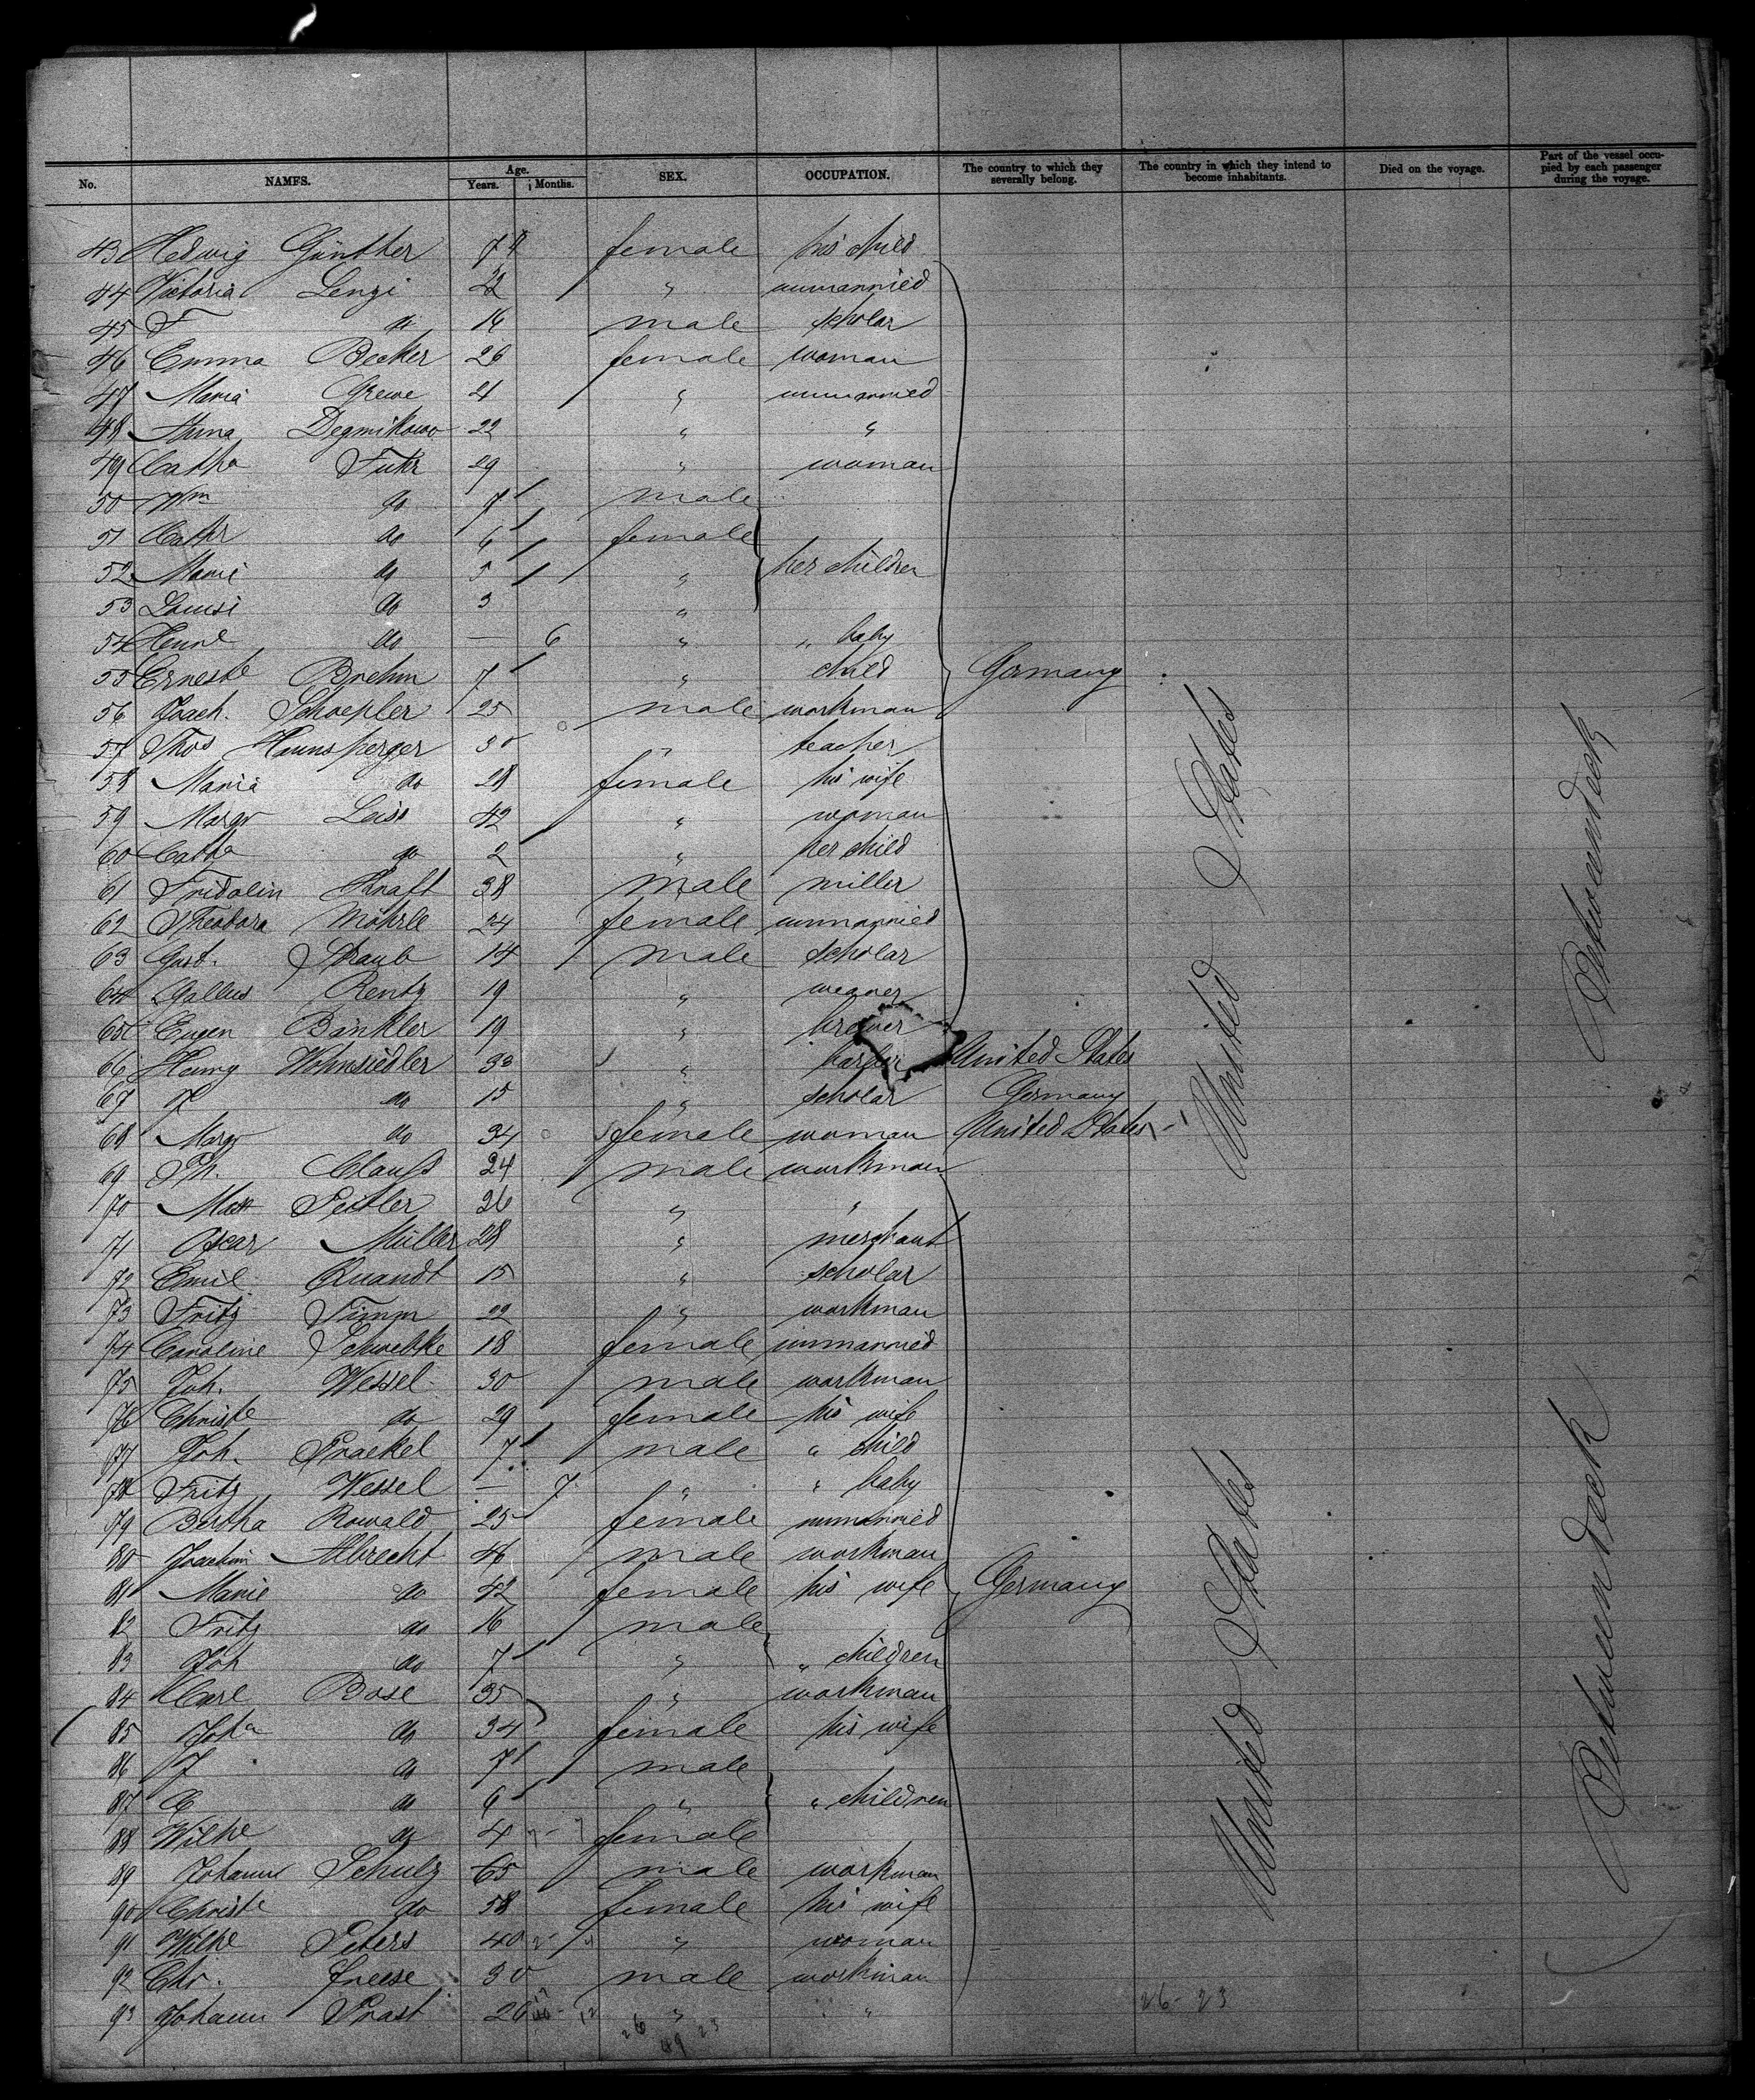 No. NAMES. Age. Years. Months. SEX. OCCUPATION. The country to which they severally belong. The country in which they intend to become inhabitants. Died on the voyage. Part of the vessel occupied by each passenger during the voyage.
43 Hedwig Günther 7 female his child
44 Victoria Lenzi 22 " unmarried
45 F do 14 male scholar
46 Emma Becker 26 female woman
47 Maria Grewe 21 " unmarried
48 Anna Degmikowo 22 " "
49 Catha Fuhr 29 " woman
50 Wm do 7 male
51 Cathr do 6 female
52 Marie do 5 " her children
53 Louisi do 3 "
54 Henne do — 6 " " baby
55 Erneste Brehm 7 " child Germany
56 Joach. Schoepler 25 male workman
57 Thos Hunsperger 30 " teacher
58 Maria do 28 female his wife
59 Margr Leiss 42 " woman
60 Catha do 2 " her child
61 Fridolin Kraft 38 male miller
62 Theodora Möhrle 24 female unmarried
63 Gust. Straub 14 male scholar
64 Gallus Rentz 19 " weaver
65 Eugen Bänkler 19 " brewer
66 Henry Wohnsiedler 33 " barber United States
67 J do 15 " scholar Germany
68 Margr do 34 female woman United States
United States
Betweendeck
69 Ph. Clauss 24 male workman
70 Max Seitler 26 " "
71 Oscar Müller 28 " merchant
72 Emil Quandt 15 " scholar
73 Fritz Timm 22 " workman
74 Caroline Schwebke 18 female unmarried
75 Joh. Wessel 30 male workman
76 Christe do 29 female his wife
77 Joh. Praekel 7 male " child
78 Fritz Wessel — 7 " " baby
79 Bertha Rowald 25 female unmarried
80 Joachim Albrecht 46 male workman
81 Marie do 42 female his wife Germany
82 Fritz do 16 male
83 Joh do 7 " " children
84 Carl Bose 35 " workman
85 Joha do 34 female his wife
86 J do 7 male
87 C do 6 " " children
88 Wilhe do 4 female
89 Johann Schulz 65 male workman
90 Christe do 58 female his wife
91 Wilhe Peters 40 " woman
92 Chr. Freese 30 male workman
93 Johann Prast 26 " "
United States
Betweendeck
26 - 23
26 23
49